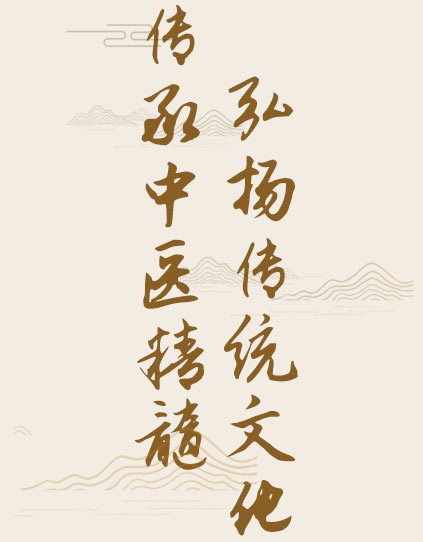 传承中医精髓
弘扬传统文化